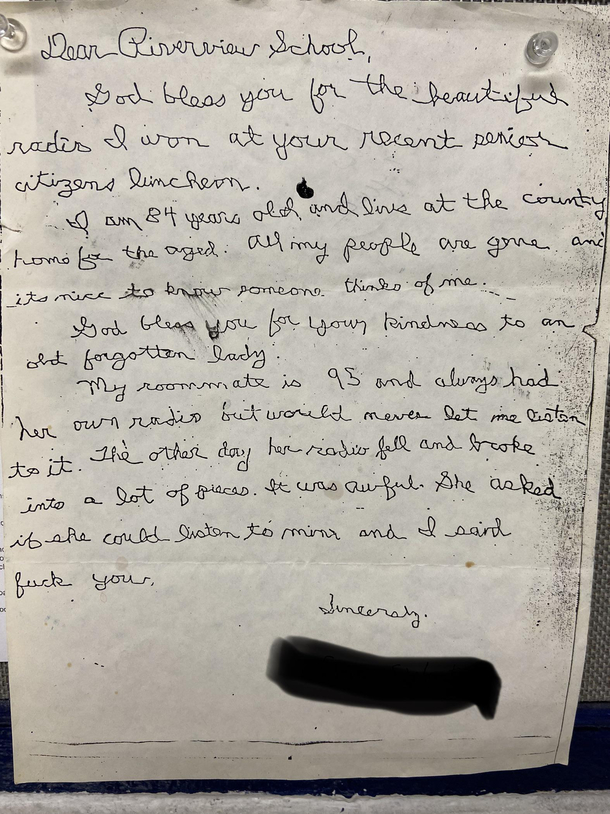 Dear Riverview School,
God bless you for the beautiful
radio I won at your recent senior
citizens luncheon.
I am 84 years old and live at the county
home for the aged. All my people are gone and
its nice to know someone thinks of me.
God bless you for your kindness to an
old forgotten lady.
My roommate is 95 and always had
her own radio but would never let me listen
to it. The other day her radio fell and broke
into a lot of pieces. It was awful. She asked
if she could listen to mine and I said
fuck you.
Sincerely.